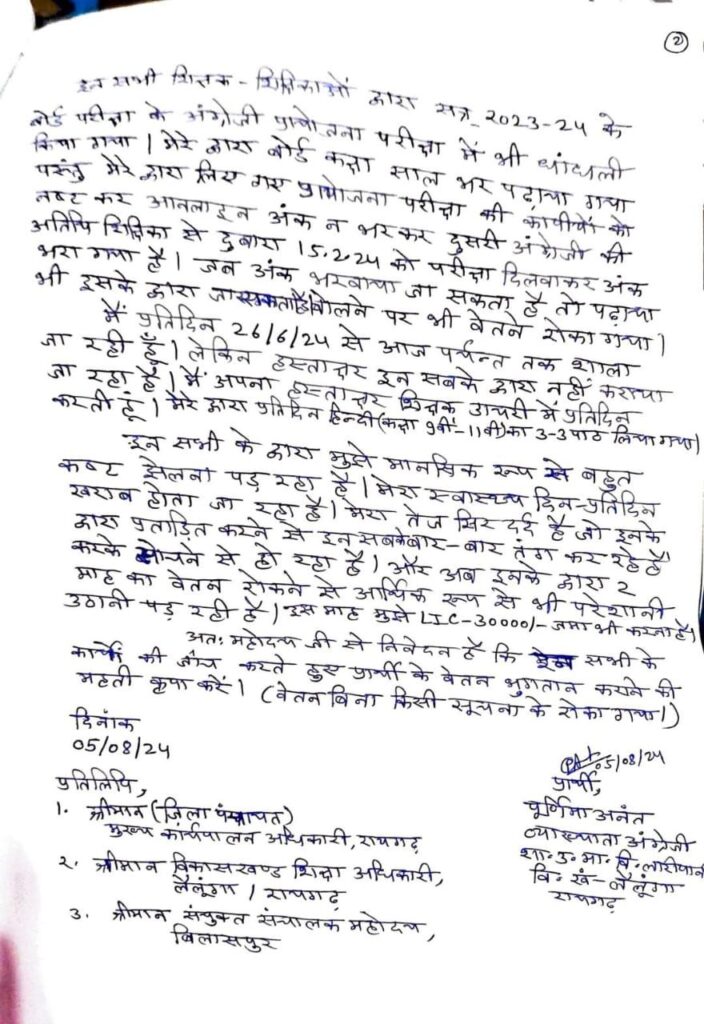 2
इन सभी शिक्षक - शिक्षिकाओं द्वारा सत्र 2023-24 के
बोर्ड परीक्षा के अंग्रेजी प्रायोजना परीक्षा में भी धांधली
किया गया । मेरे द्वारा बोर्ड कक्षा साल भर पढ़ाया गया
परंतु मेरे द्वारा लिए गए प्रायोजना परीक्षा की कापीयों को
नष्ट कर आनलाइन अंक न भर कर दुसरी अंग्रेजी की
अतिथि शिक्षिका से दुबारा 15.2.24 को परीक्षा दिलवाकर अंक
भरा गया है । जब अंक भरवाया जा सकता है तो पढ़ाया
भी इसके द्वारा जा सकता है। बोलने पर भी वेतन रोका गया।
मैं प्रतिदिन 26/6/24 से आज पर्यन्त तक शाला
जा रही हूँ। लेकिन हस्ताक्षर इन सबके द्वारा नहीं कराया
जा रहा है। मैं अपना हस्ताक्षर शिक्षक डायरी में प्रतिदिन
करती हूं। मेरे द्वारा प्रतिदिन हिन्दी (कक्षा 9वीं-11वीं) का 3-3 पाठ लिया गया।
इन सभी के द्वारा मुझे मानसिक रूप से बहुत
कष्ट झेलना पड़ रहा है । मेरा स्वास्थ्य दिन-प्रतिदिन
खराब होता जा रहा है। मेरा तेज सिर दर्द है जो इनके
द्वारा प्रताड़ित करने से इन सबके बार-बार तंग कर रहे हैं
करके सोचने से हो रहा है। और अब इनके द्वारा 2
माह का वेतन रोकने से आर्थिक रूप से भी परेशानी
उठानी पड़ रही है। इस माह मुझे LIC-30000/- जमा भी करना है।
अतः महोदय जी से निवेदन है कि इन सभी के
कार्यों की जाँच करते हुए प्रार्थी के वेतन भुगतान कराने की
महती कृपा करें। (वेतन बिना किसी सूचना के रोका गया।)
दिनांक
05/08/24
05/08/24
प्रतिलिपि,
प्रार्थी,
1. श्रीमान (जिला पंचायत)
मुख्य कार्यपालन अधिकारी, रायगढ़
पूर्णिमा अनंत
व्याख्याता अंग्रेजी
2. श्रीमान विकासखण्ड शिक्षा अधिकारी,
लैलूंगा / रायगढ़
शा. उ. मा. वि. लारीपानी
वि. खं - लैलूंगा
रायगढ़
3. श्रीमान संयुक्त संचालक महोदय,
बिलासपुर